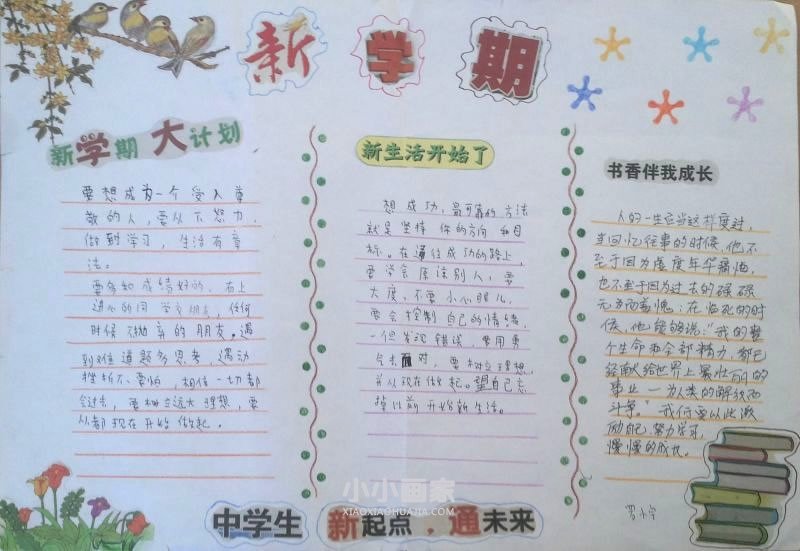 新学期
新学期大计划
要想成为一个受人尊
敬的人,要从下努力,
做到学习,生活有章
法。
成绩好的,有上
进心的同学交朋友,任何
时候不抛弃的朋友。遇
到难道题多思考,遇动
挫折不要怕,相信一切都
会过去,要树立远大理想,要
从都现在开始做起。
新生活开始了
想成功,最可靠的方法
就是坚持你的方向和目
标。在通往成功的路上,
要学会原谅别人,要
大度,不要小心眼儿,
要会控制自己的情绪,
一但发现错误,要用勇
气去面对,要树立理想,
并从现在做起。望自己忘
掉以前开始新生活。
书香伴我成长
人的一生应当这样度过,
当回忆往事的时候,他不
至于因为虚度年华痛悔,
也不至于因为过去的碌碌
无为而羞愧;在临死的时
候,他能够说:"我的整
个生命和全部精力,都已
经献给世界上最壮丽的
事业一为人类的解放而
斗争。"我们要以此激
励自己,努力学习,
慢慢的成长。
中学生 新起点·通未来
小小画家
XIAOXIAOHUAJIA.COM